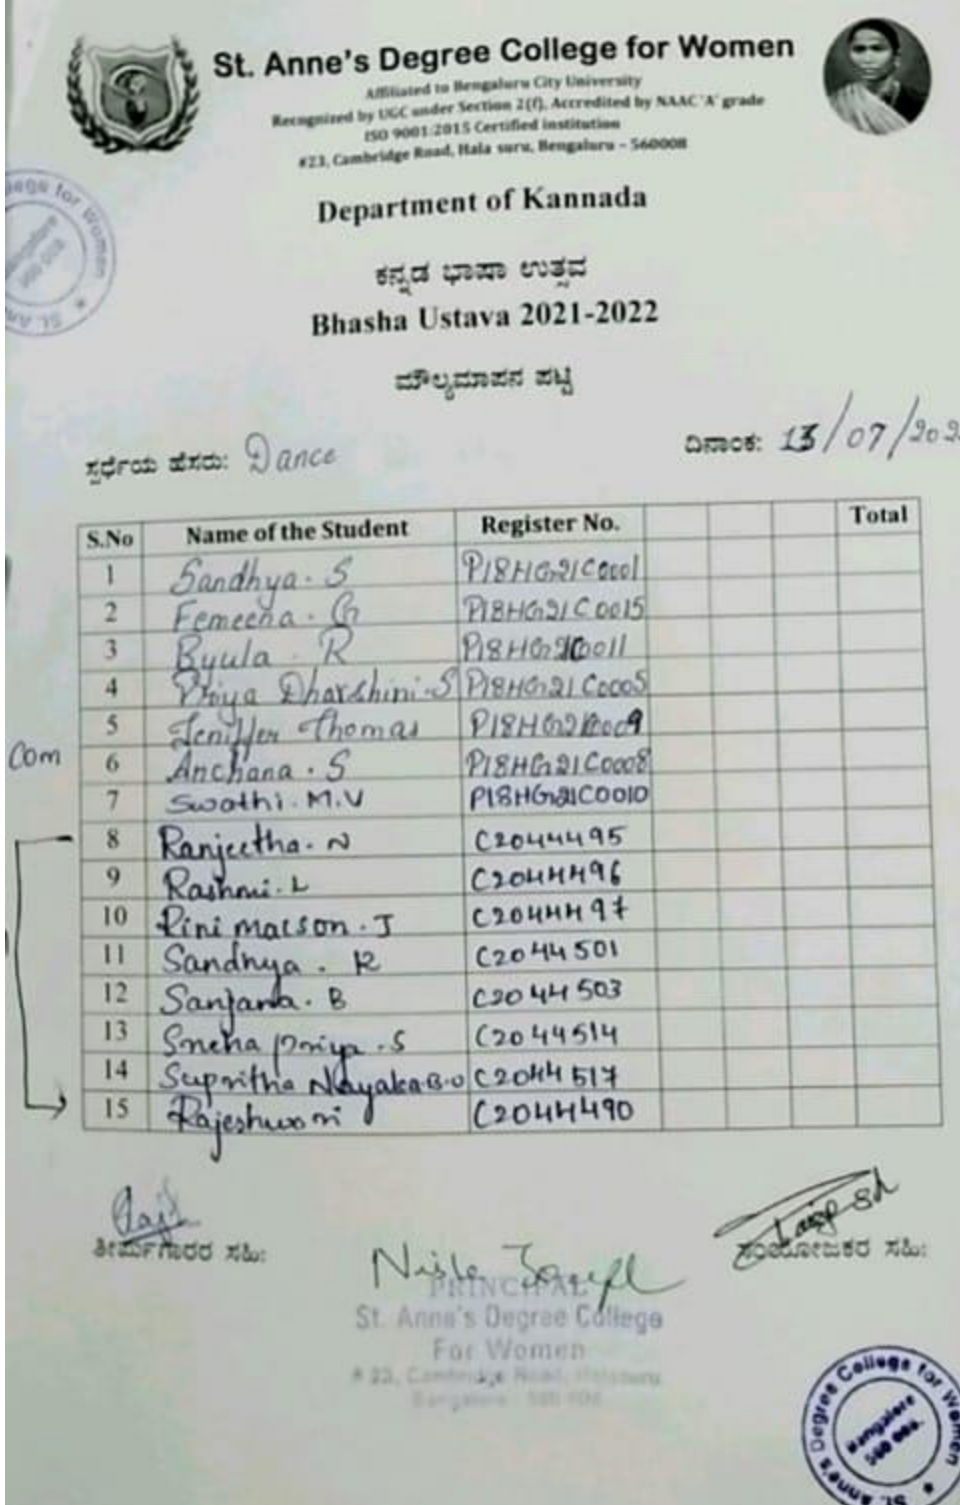 St. Anne's Degree College for Women
Affiliated to Bengaluru City University
Recognized by UGC under Section 2(f), Accredited by NAAC 'A' grade
ISO 9001:2015 Certified institution
#23, Cambridge Road, Hala suru, Bengaluru – 560008
Department of Kannada
ಕನ್ನಡ ಭಾಷಾ ಉತ್ಸವ
Bhasha Ustava 2021-2022
ಮೌಲ್ಯಮಾಪನ ಪಟ್ಟಿ
ಸ್ಪರ್ಧೆಯ ಹೆಸರು: Dance ದಿನಾಂಕ: 13/07/202
S.No Name of the Student Register No. Total
1 Sandhya. S P18HG21C0001
2 Femeena. G P18HG21C0015
3 Byula. R P18HG21C0011
4 Priya Dharshini. S P18HG21C0005
5 Jeniffer Thomas P18HG21C0009
Com
6 Anchana. S P18HG21C0008
7 Swathi. M.V P18HG21C0010
8 Ranjeetha. N C2044495
9 Rashmi. L C2044496
10 Rini Matson. J C2044497
11 Sandhya. R C2044501
12 Sanjana. B C2044503
13 Sneha priya. S C2044514
14 Supritha Nayaka B.U C2044517
15 Rajeshwari C2044490
ತೀರ್ಪುಗಾರರ ಸಹಿ: ಸಂಯೋಜಕರ ಸಹಿ:
PRINCIPAL
St. Anne's Degree College
For Women
# 23, Cambridge Road, Halasuru
St. Anne's Degree College for Women
Bangalore
560 008.